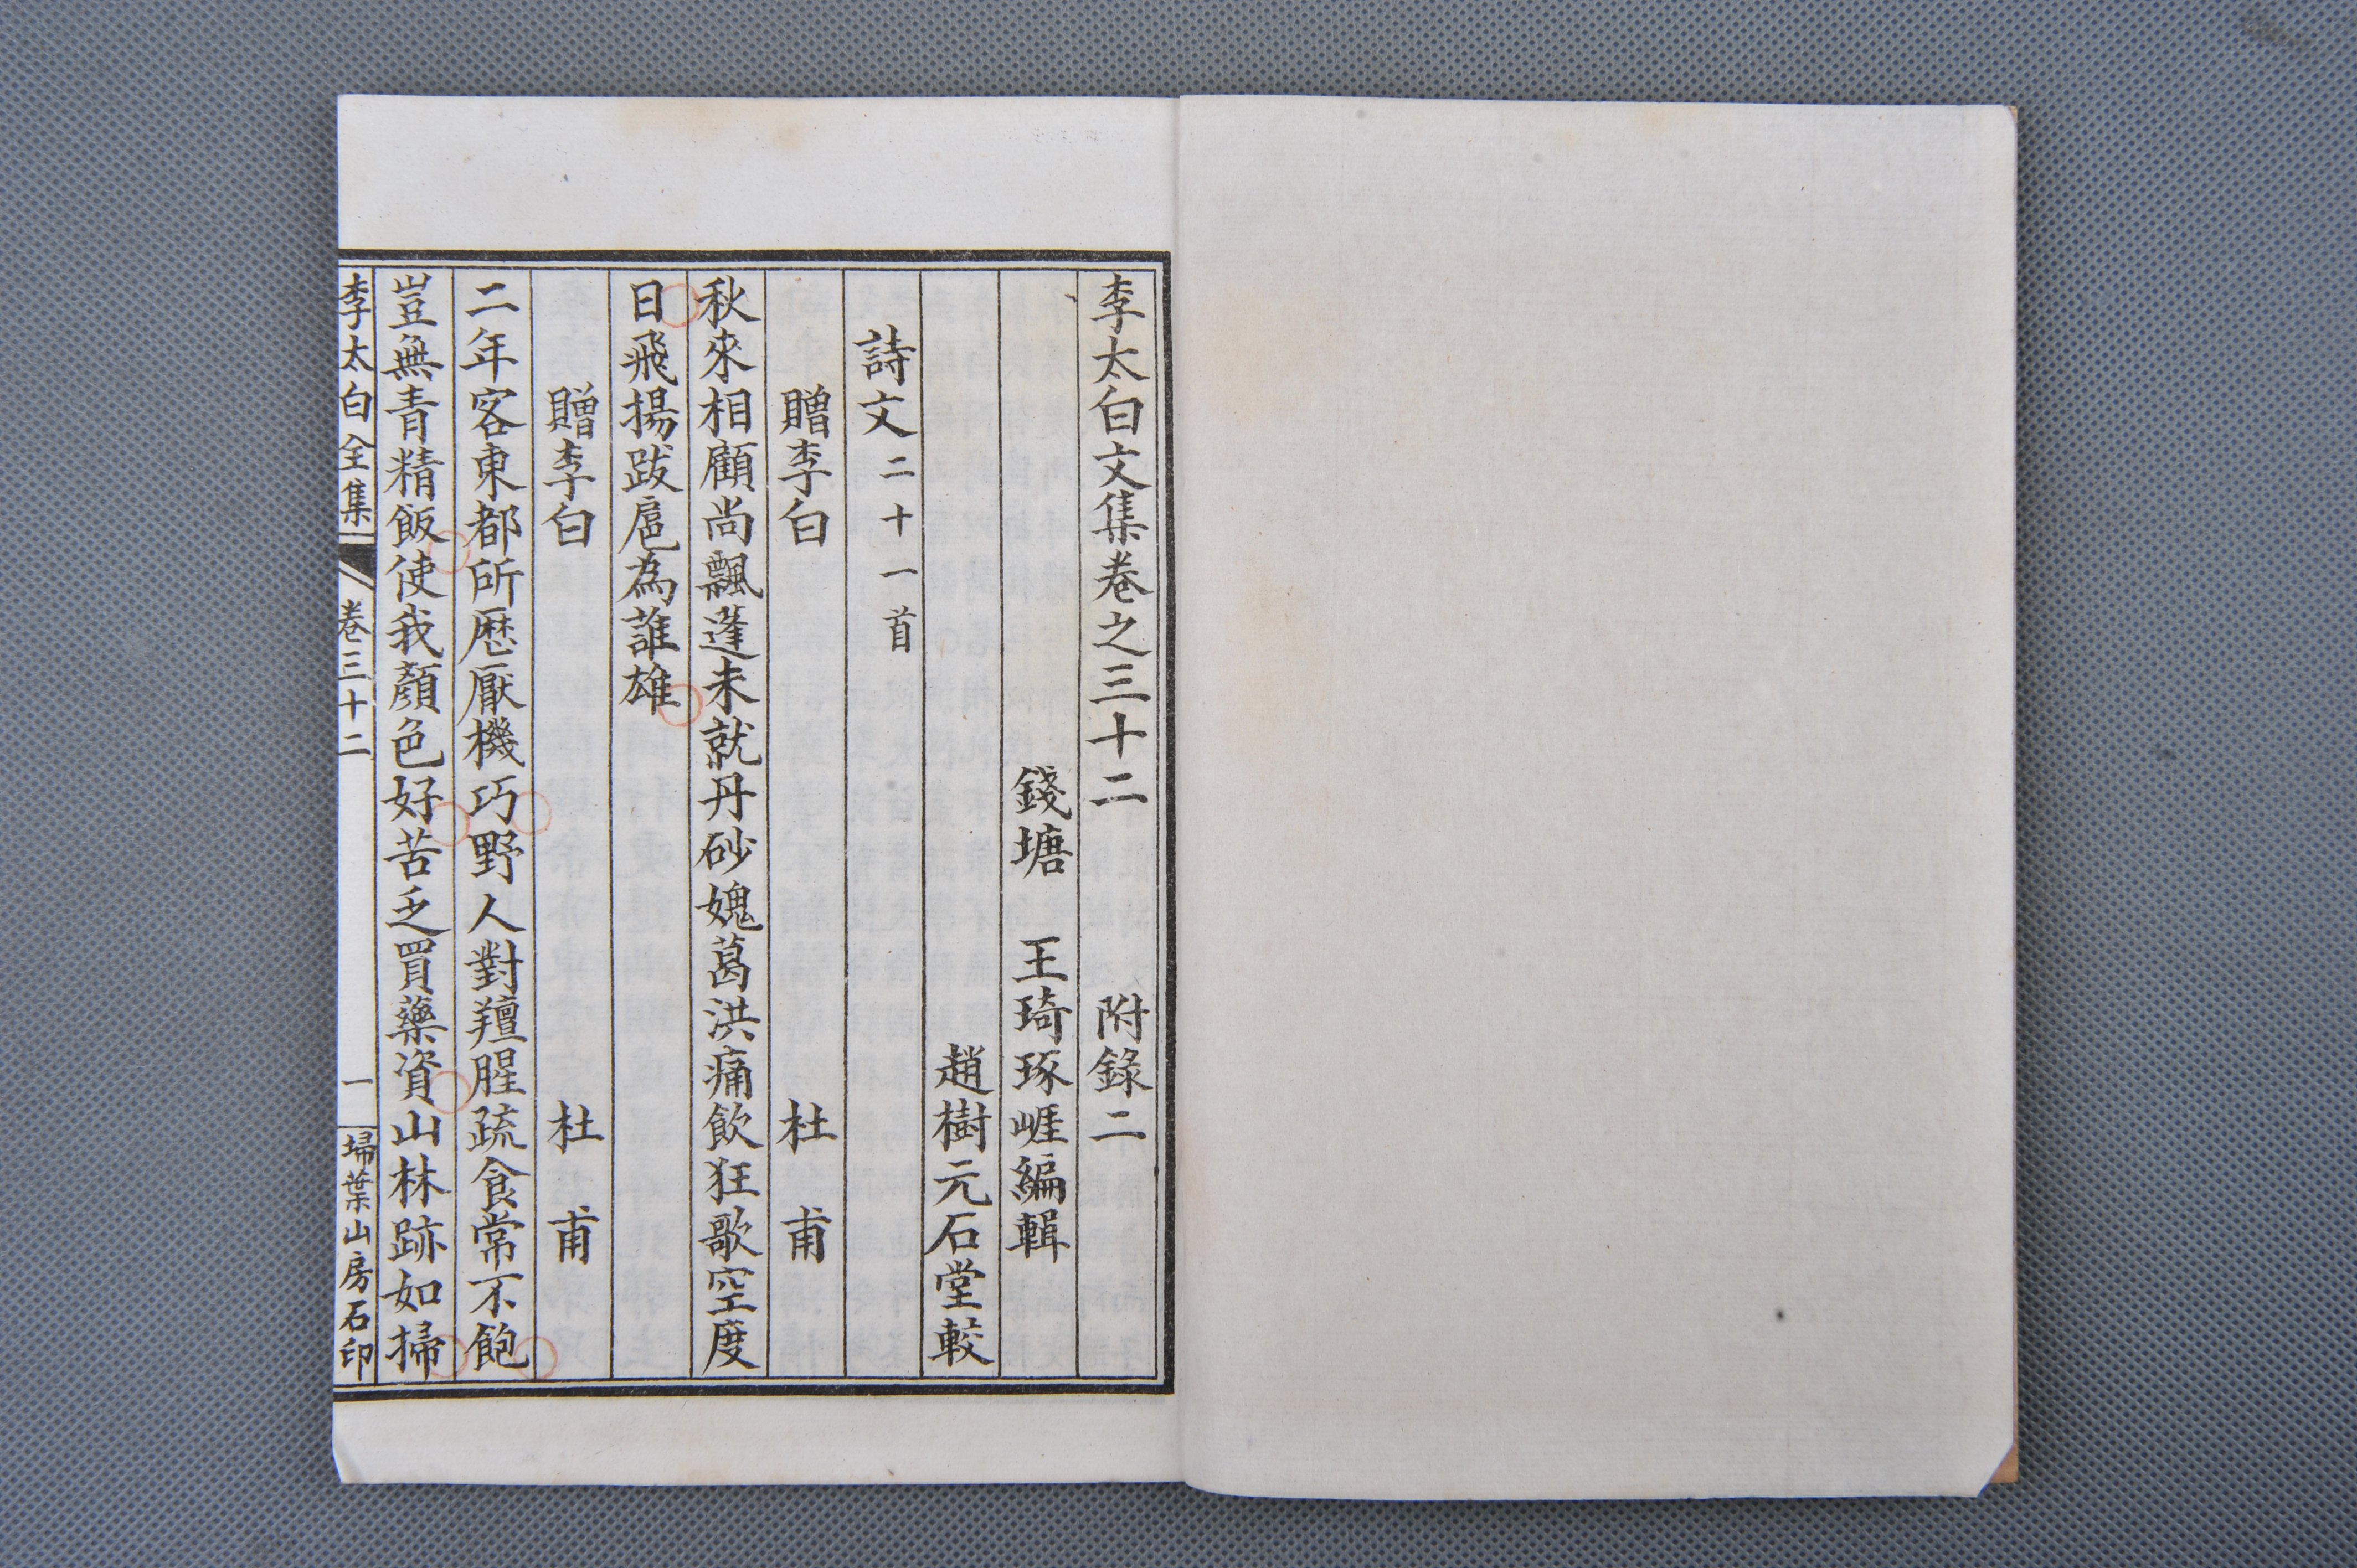 李太白文集卷之三十二 附錄二
錢塘 王琦琢崕編輯
趙樹元石堂較
詩文二十一首
贈李白 杜甫
秋來相顧尚飄蓬未就丹砂媿葛洪痛飲狂歌空度
日飛揚跋扈為誰雄
贈李白 杜甫
二年客東都所歷厭機巧野人對羶腥疏食常不飽
豈無青精飯使我顏色好苦乏買藥資山林跡如掃
李太白全集 卷三十二 一 埽葉山房石印